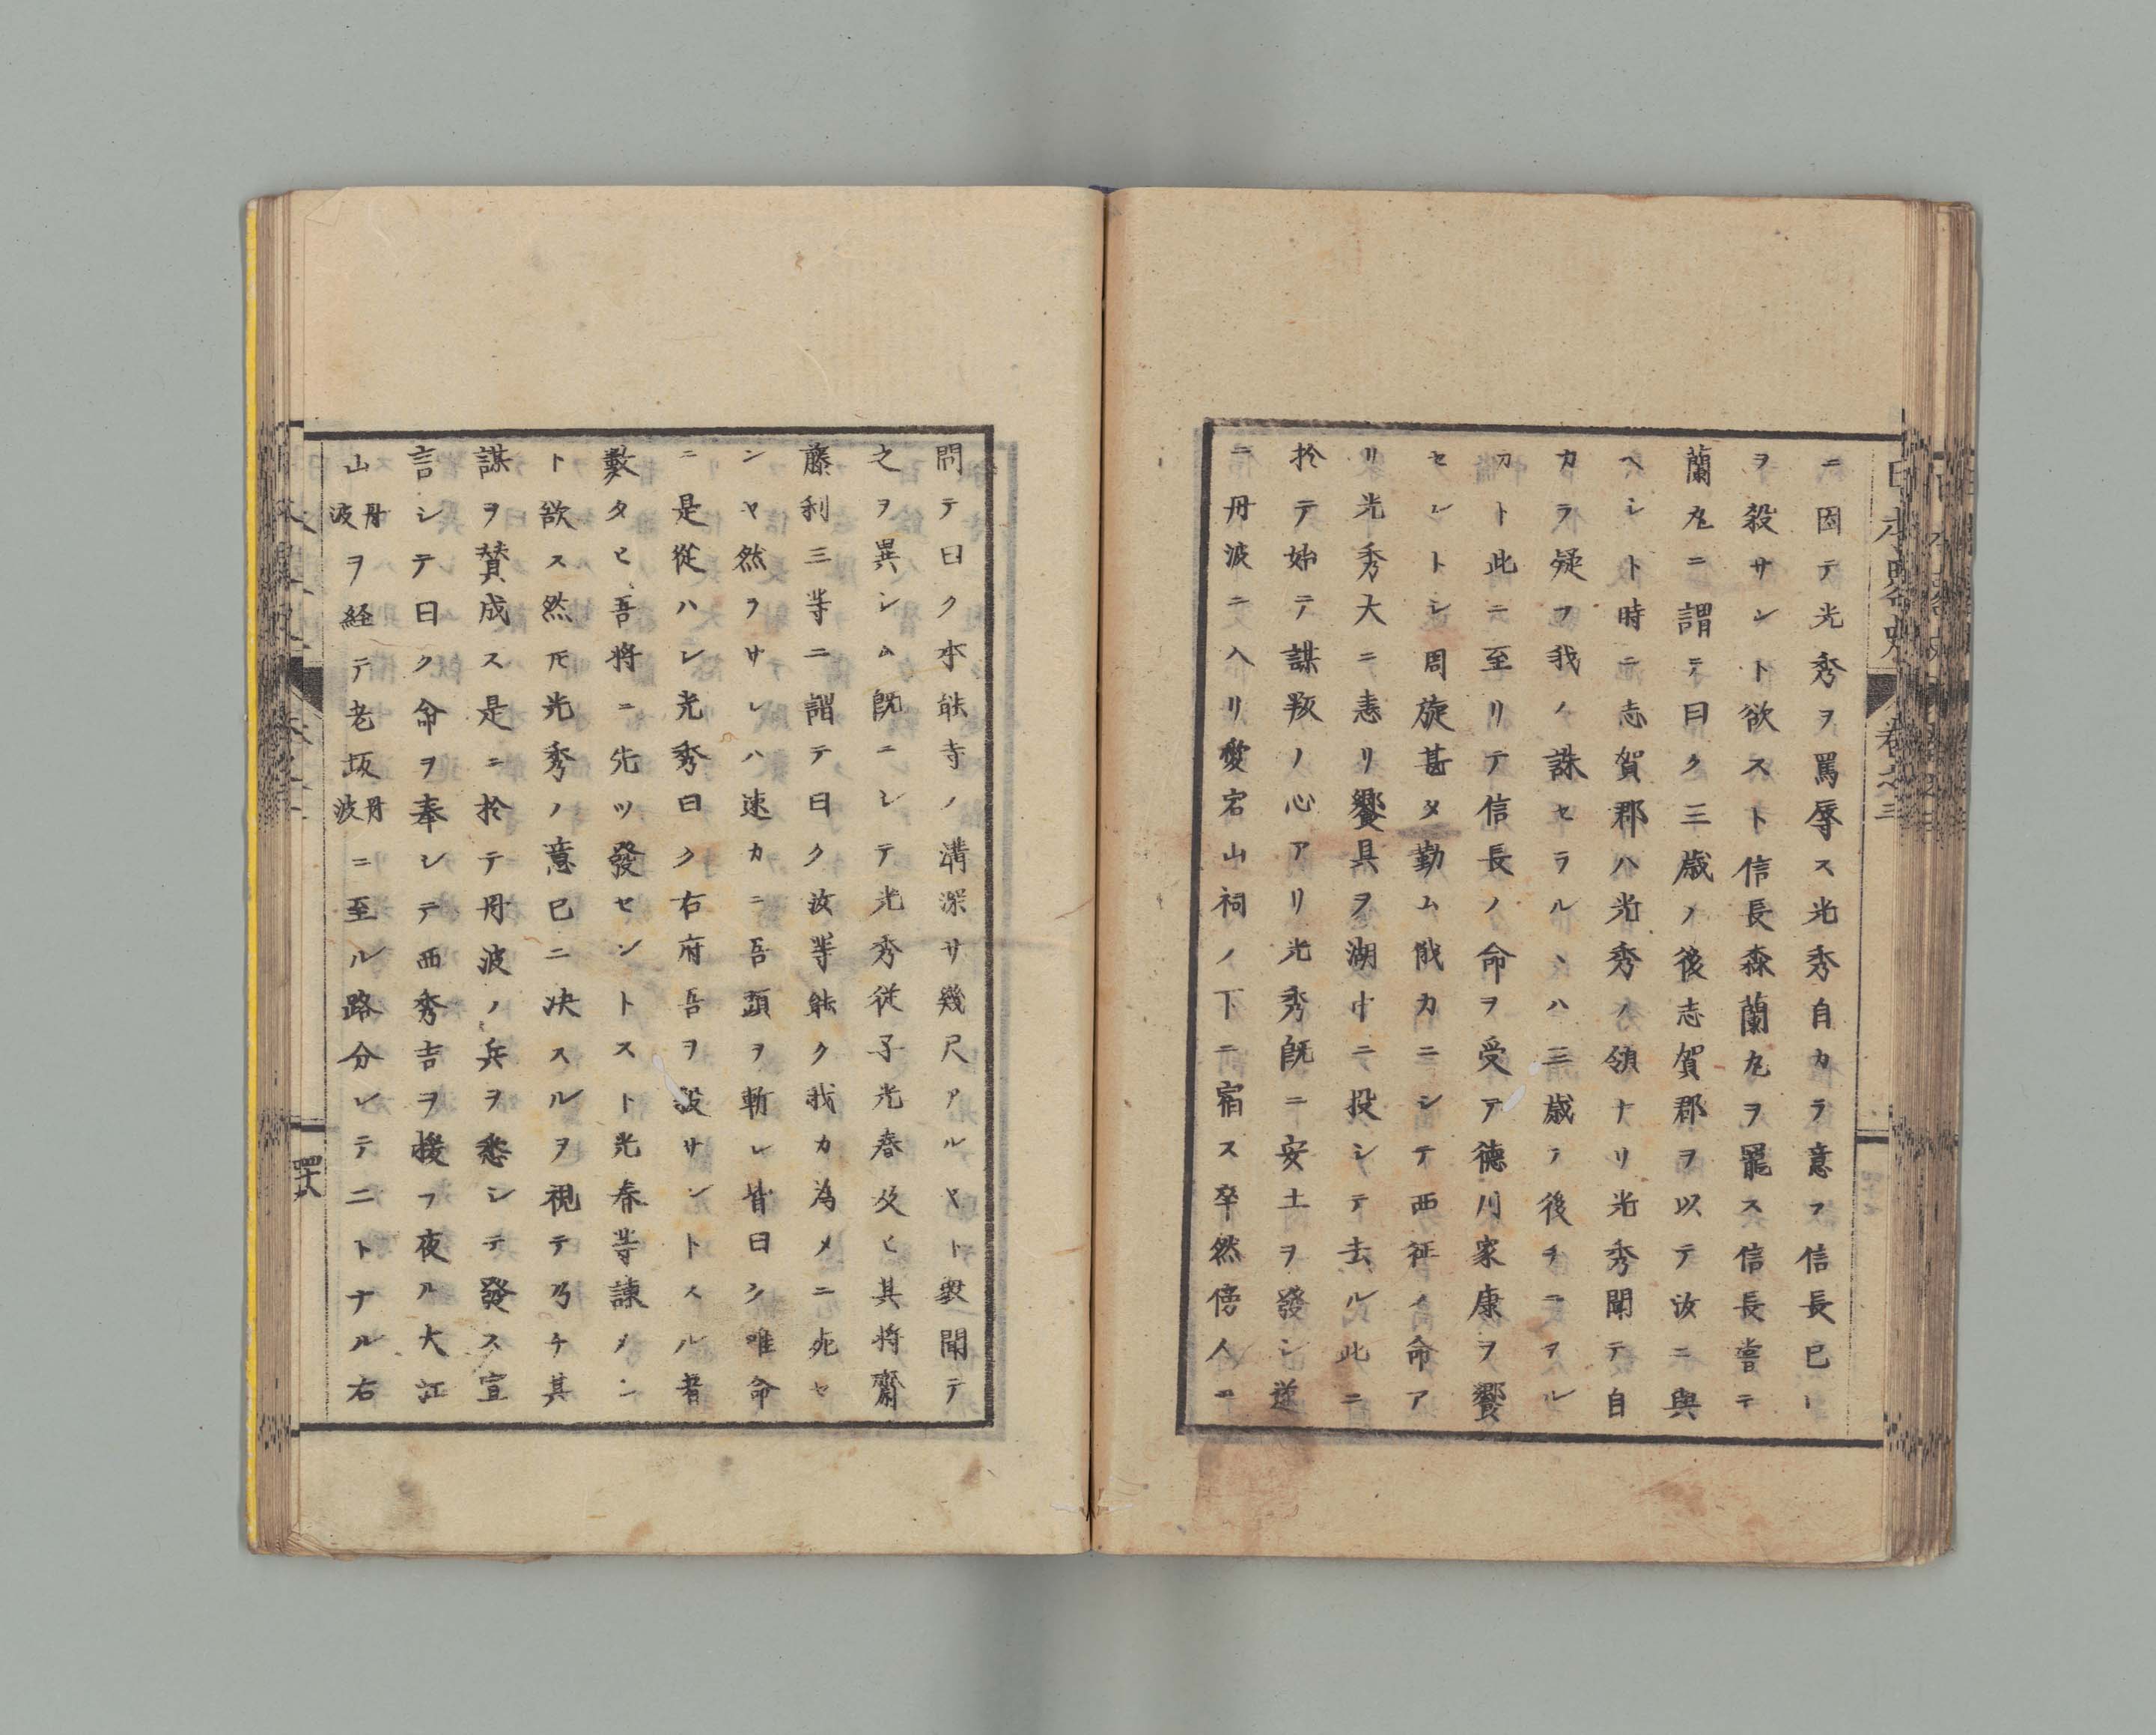 ニ因テ光秀ヲ罵辱ス光秀自カラ意フ信長已レ
ヲ殺サント欲スト信長森蘭丸ヲ寵ス信長嘗テ
蘭丸ニ謂テ曰ク三歳ノ後志賀郡ヲ以テ汝ニ與
ヘシト時ニ志賀郡ハ光秀ノ領ナリ光秀聞テ自
カラ疑フ我ノ誅セラルヽハ三歳ノ後チニアル
カト此ニ至リテ信長ノ命ヲ受テ徳川家康ヲ饗
セントシ周旋甚タ勤ム俄カニシテ西征ノ命ア
リ光秀大ニ恚リ饗具ヲ湖中ニ投シテ去ル此ニ
於テ始テ謀叛ノ心アリ光秀既ニ安土ヲ發シ遂
ニ丹波ニ入リ愛宕山祠ノ下ニ宿ス卒然傍人ニ
日本畧史
卷之三
問テ曰ク本能寺ノ溝深サ幾尺アルヤト衆聞テ
之ヲ異シム既ニシテ光秀従子光春及ヒ其将齋
藤利三等ニ謂テ曰ク汝等能ク我カ為メニ死セ
ンヤ然ラサレハ速カニ吾頭ヲ斬レ皆曰ク唯命
ニ是從ハン光秀曰ク右府吾ヲ殺サントスル者
數タヒ吾将ニ先ツ發セントスト光春等諫メン
ト欲ス然𪜈光秀ノ意已ニ决スルヲ視テ乃チ其
謀ヲ賛成ス是ニ於テ丹波ノ兵ヲ悉シテ發ス宣
言シテ曰ク命ヲ奉シテ西秀吉ヲ援フ夜ル大江
山丹波ヲ経テ老坂丹波ニ至ル路分レテ二トナル右
四十八